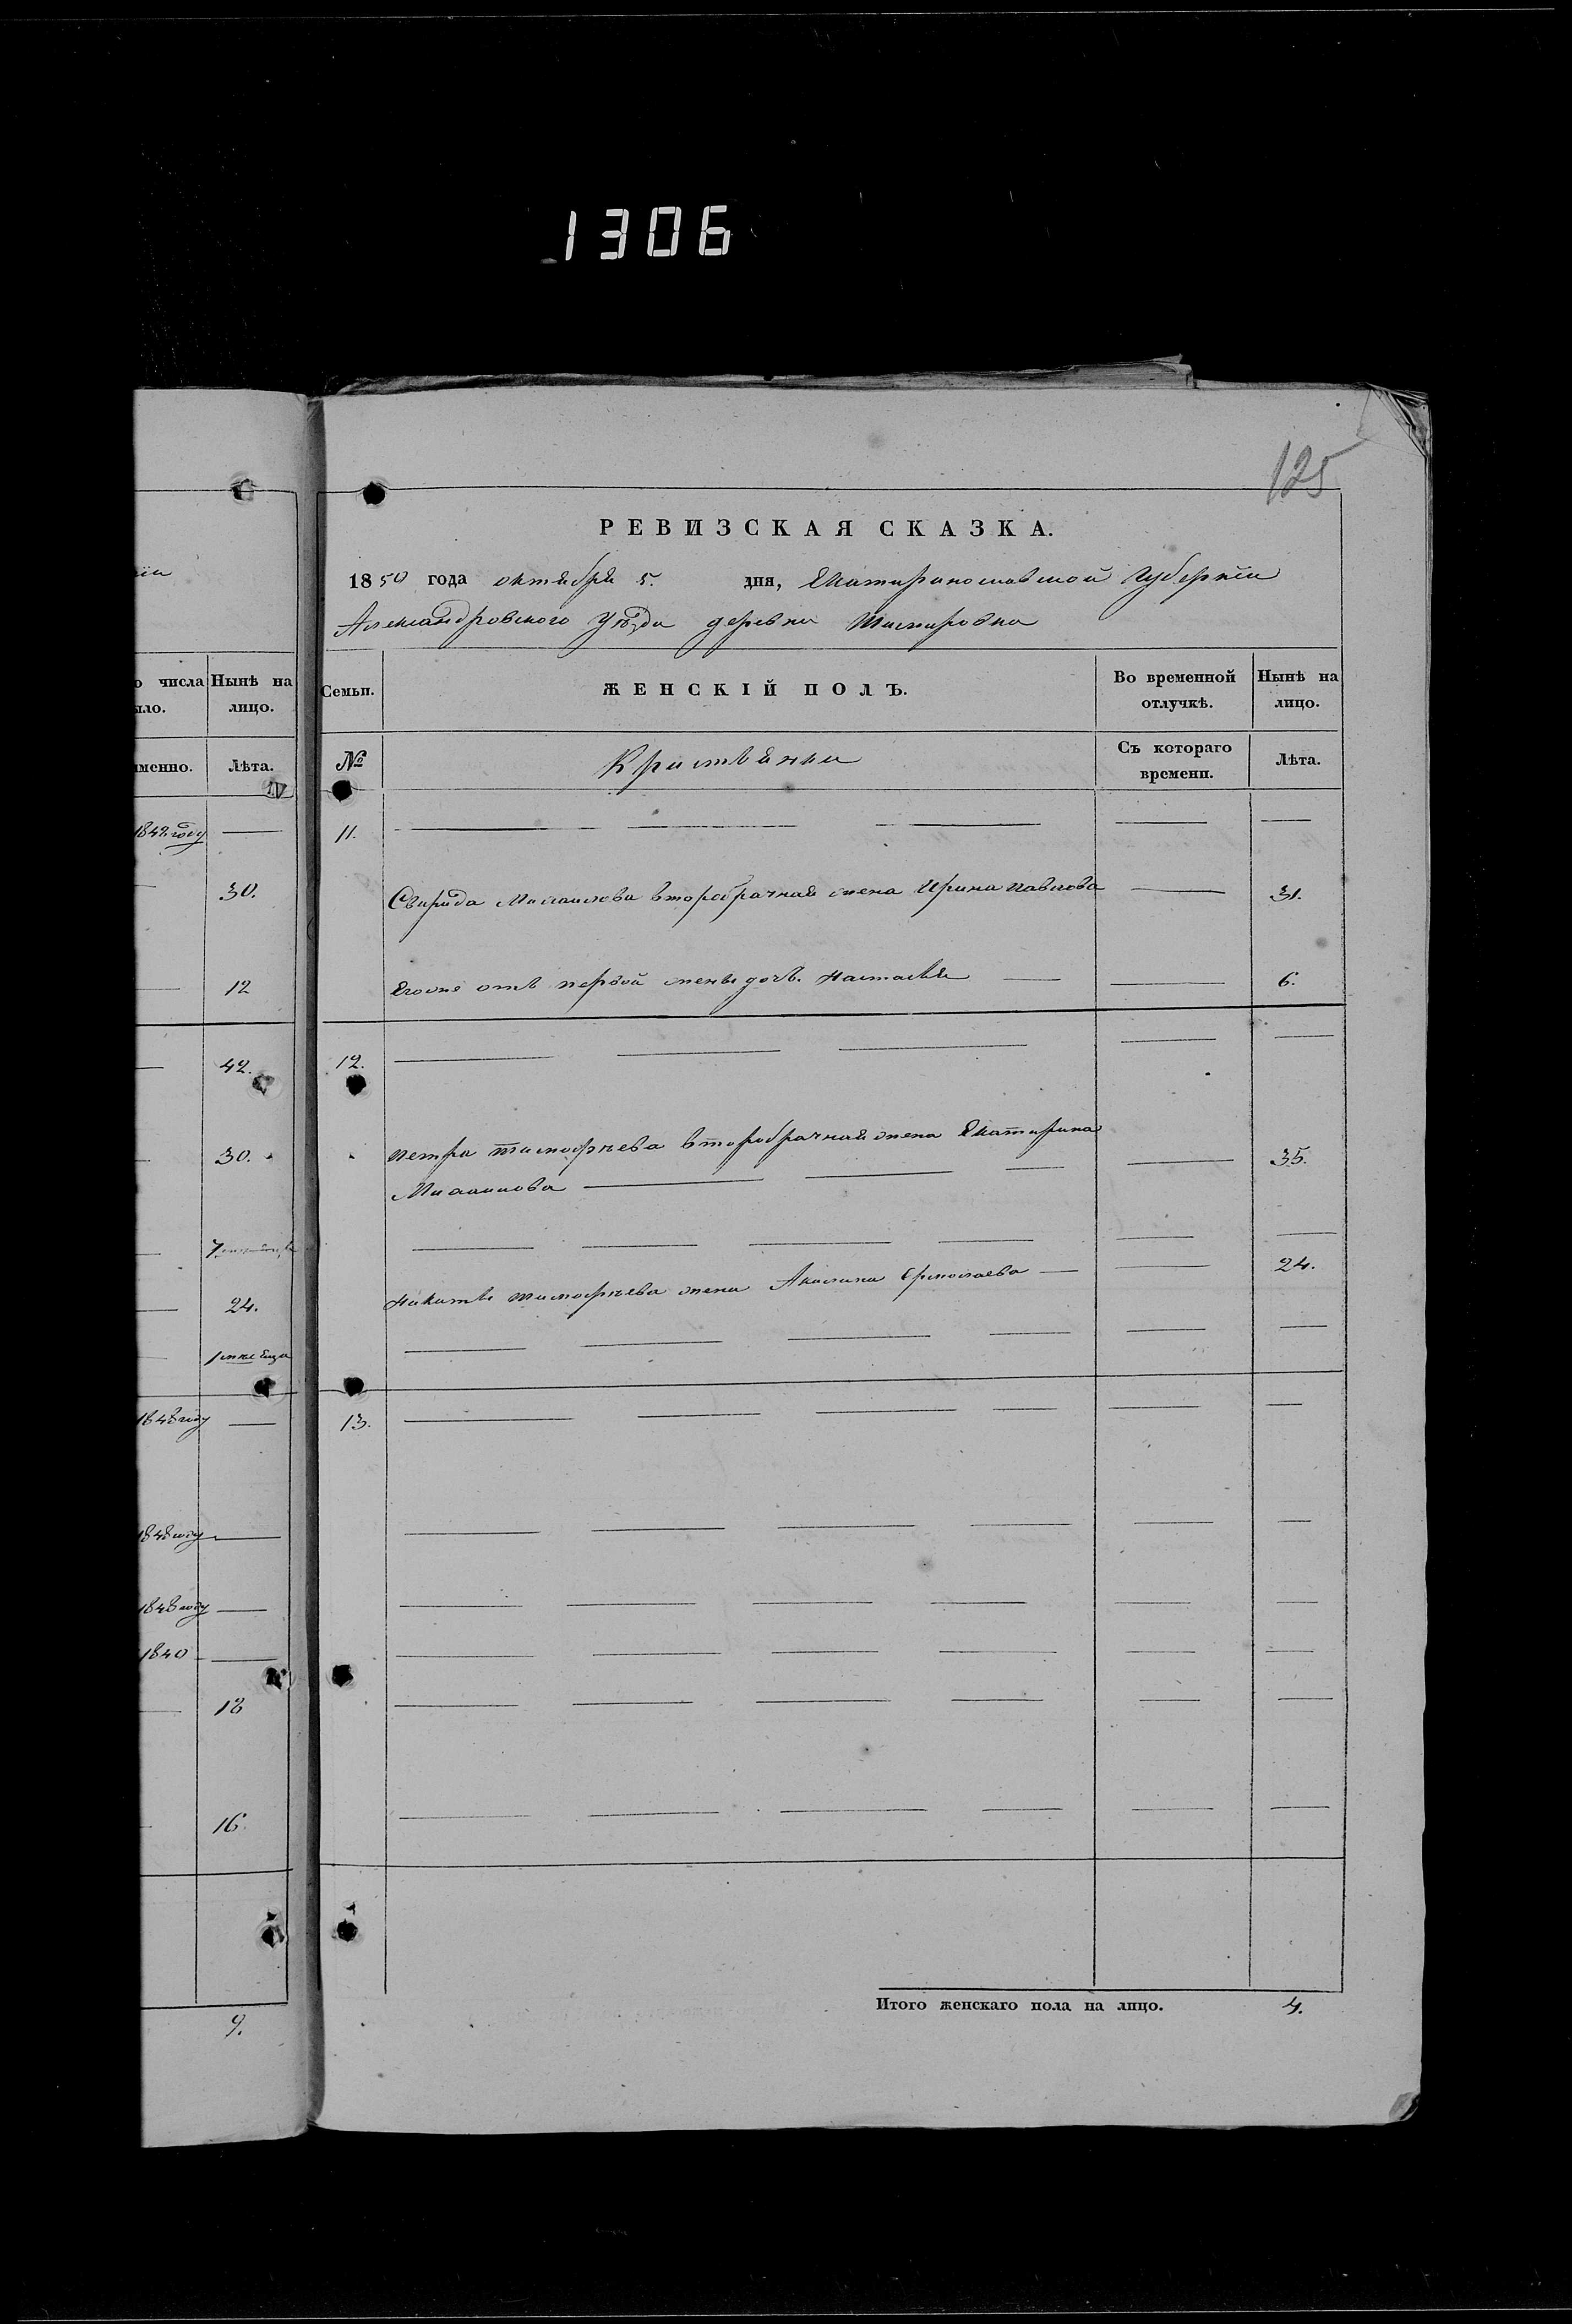 1306
125
РЕВИЗСКАЯ СКАЗКА.
1850 года октября 5. дня, Екатеринославской Губерніи
Александровскаго Уѣзда деревни
о числа Нынѣ на
ыло. лицо.
именно. Лѣта.
Семьи. ЖЕНСКІЙ ПОЛЪ. Во временной Нынѣ на
отлучкѣ. лицо.
№ Кристьянки Съ котораго Лѣта.
времени.
1842 году — 11. — — — — —
— 30. Свирида Михаилова второбрачная жена Ирина Павлова — 31.
— 12 Его же отъ первой жены дочь. Настасья — — 6.
— 42. 12. — — — — —
— 30. Петра Тимофѣева второбрачная жена Екатирина
Михаилова — — — — 35.
— 7 — — — — — —
— 24. Никиты Тимофѣева жена Акилина Ермолаева — — 24.
— 1 месеца — — — — —
1848 году — 13. — — — — — —
1848 году — — — — — — —
1848 году — — — — — — —
1840 — — — — — — —
— 18 — — — — — —
— 16. — — — — — —
Итого женскаго пола на лицо. 4.
9.